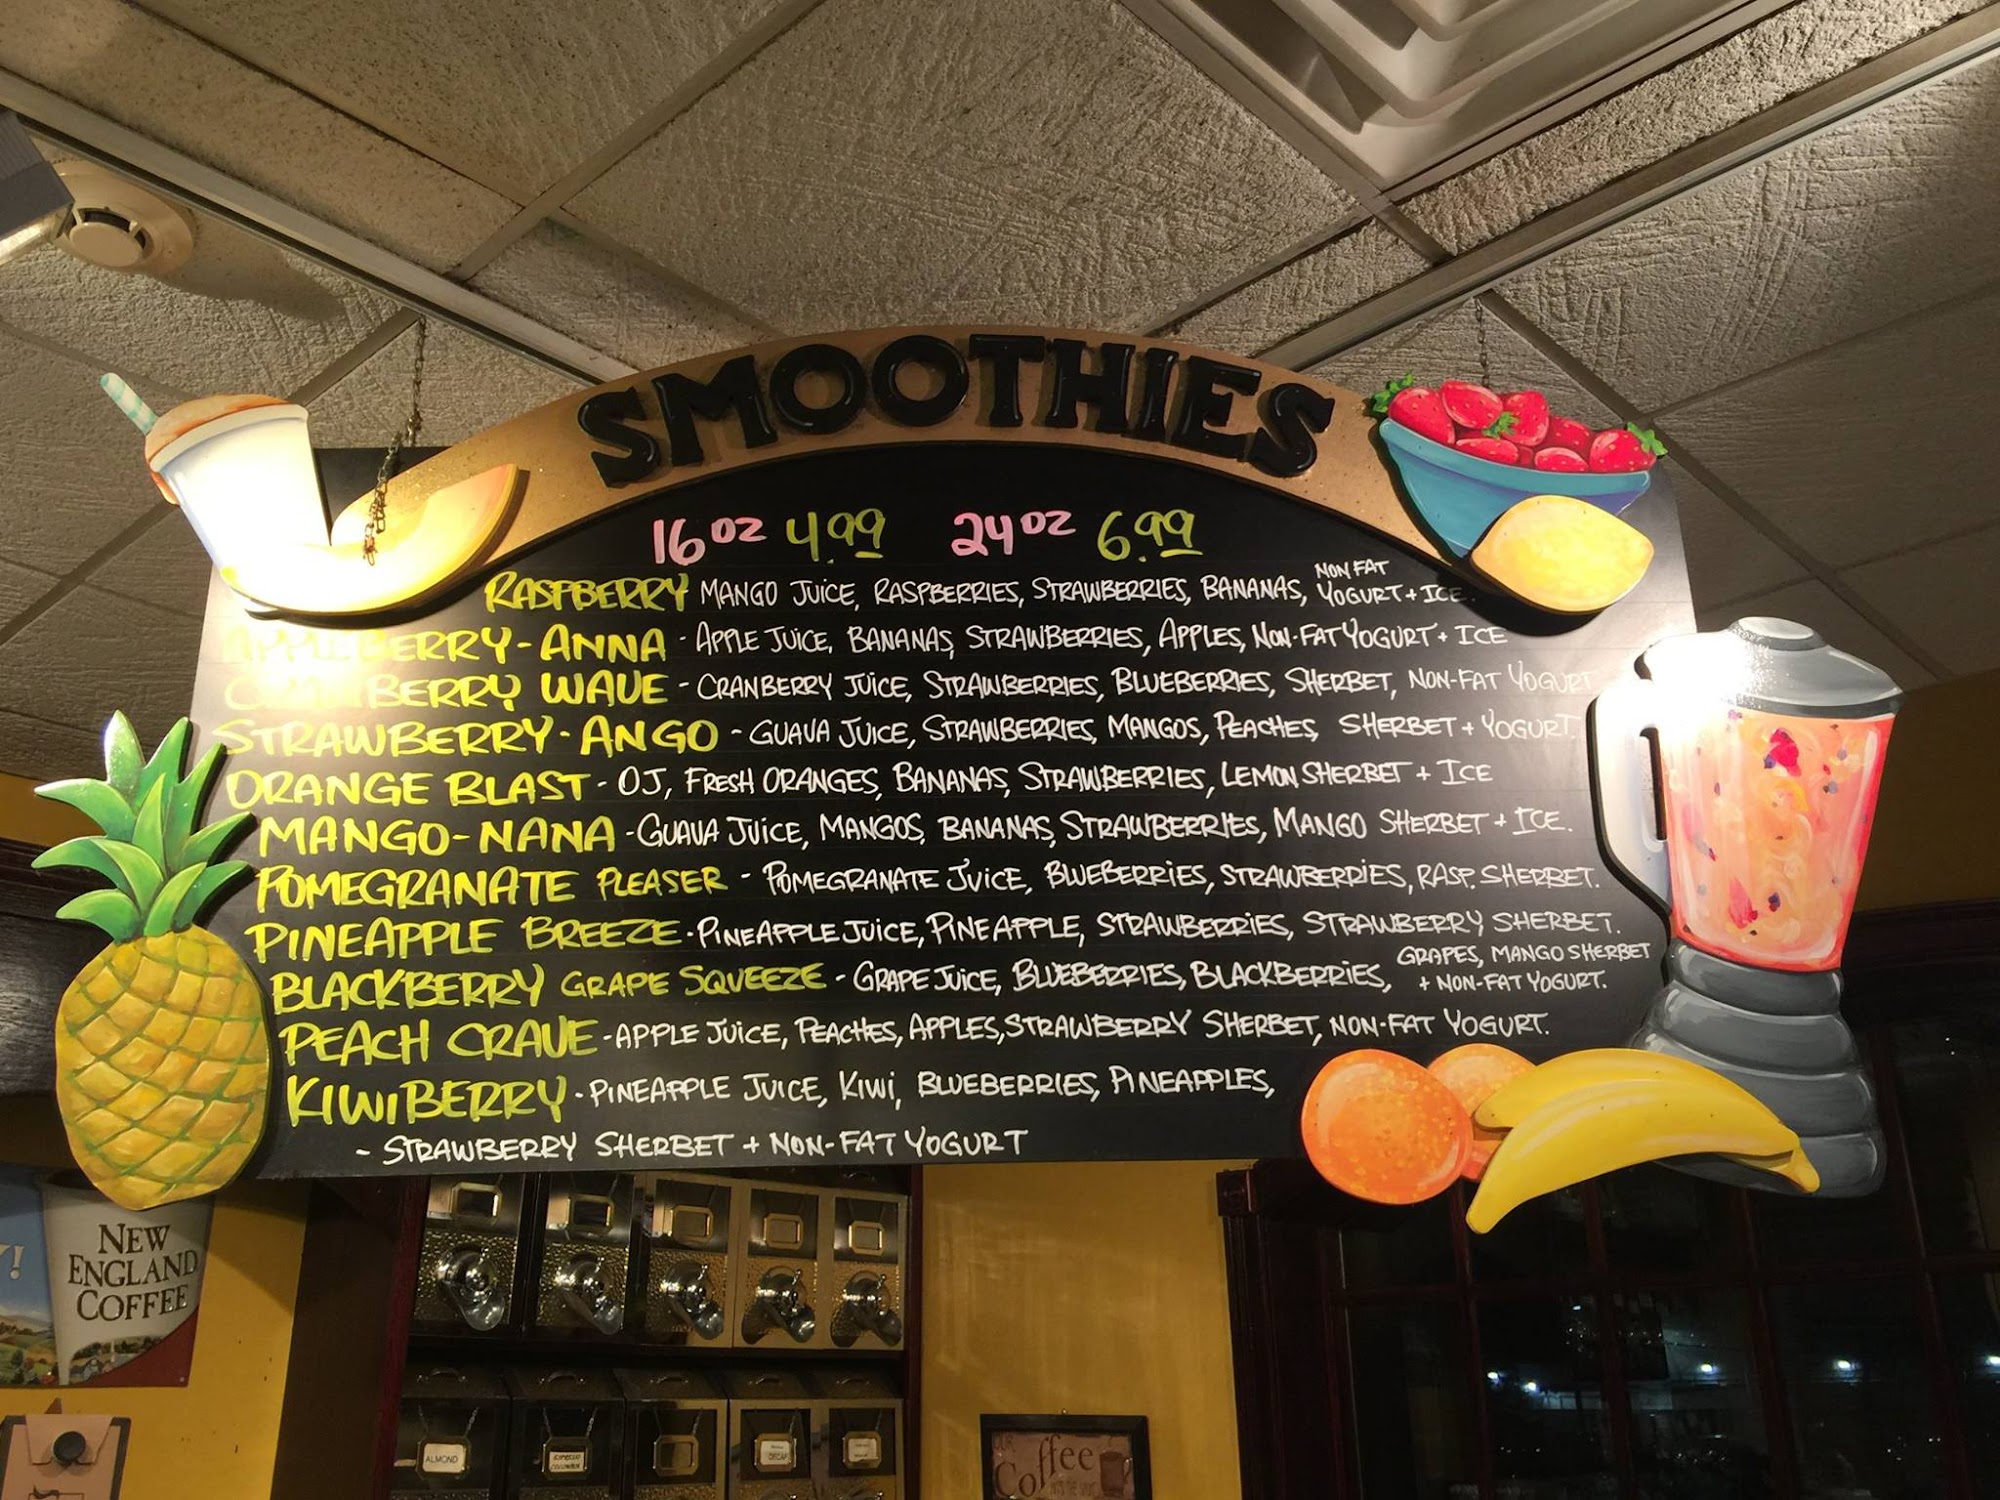 SMOOTHIES
16oz 4.99 24oz 6.99
RASPBERRY MANGO JUICE, RASPBERRIES, STRAWBERRIES, BANANAS, NON FAT YOGURT + ICE.
APPLEBERRY-ANNA - APPLE JUICE, BANANAS, STRAWBERRIES, APPLES, NON-FAT YOGURT + ICE
CRANBERRY WAVE - CRANBERRY JUICE, STRAWBERRIES, BLUEBERRIES, SHERBET, NON-FAT YOGURT
STRAWBERRY-ANGO - GUAVA JUICE, STRAWBERRIES, MANGOS, PEACHES, SHERBET + YOGURT.
ORANGE BLAST - OJ, FRESH ORANGES, BANANAS, STRAWBERRIES, LEMON SHERBET + ICE
MANGO-NANA - GUAVA JUICE, MANGOS, BANANAS, STRAWBERRIES, MANGO SHERBET + ICE.
POMEGRANATE PLEASER - POMEGRANATE JUICE, BLUEBERRIES, STRAWBERRIES, RASP. SHERBET.
PINEAPPLE BREEZE - PINEAPPLE JUICE, PINEAPPLE, STRAWBERRIES, STRAWBERRY SHERBET.
BLACKBERRY GRAPE SQUEEZE - GRAPE JUICE, BLUEBERRIES, BLACKBERRIES, GRAPES, MANGO SHERBET
+ NON-FAT YOGURT.
PEACH CRAVE - APPLE JUICE, PEACHES, APPLES, STRAWBERRY SHERBET, NON-FAT YOGURT.
KIWIBERRY - PINEAPPLE JUICE, KIWI, BLUEBERRIES, PINEAPPLES,
- STRAWBERRY SHERBET + NON-FAT YOGURT
Y!
NEW
ENGLAND
COFFEE
ALMOND
DECAF
Coffee